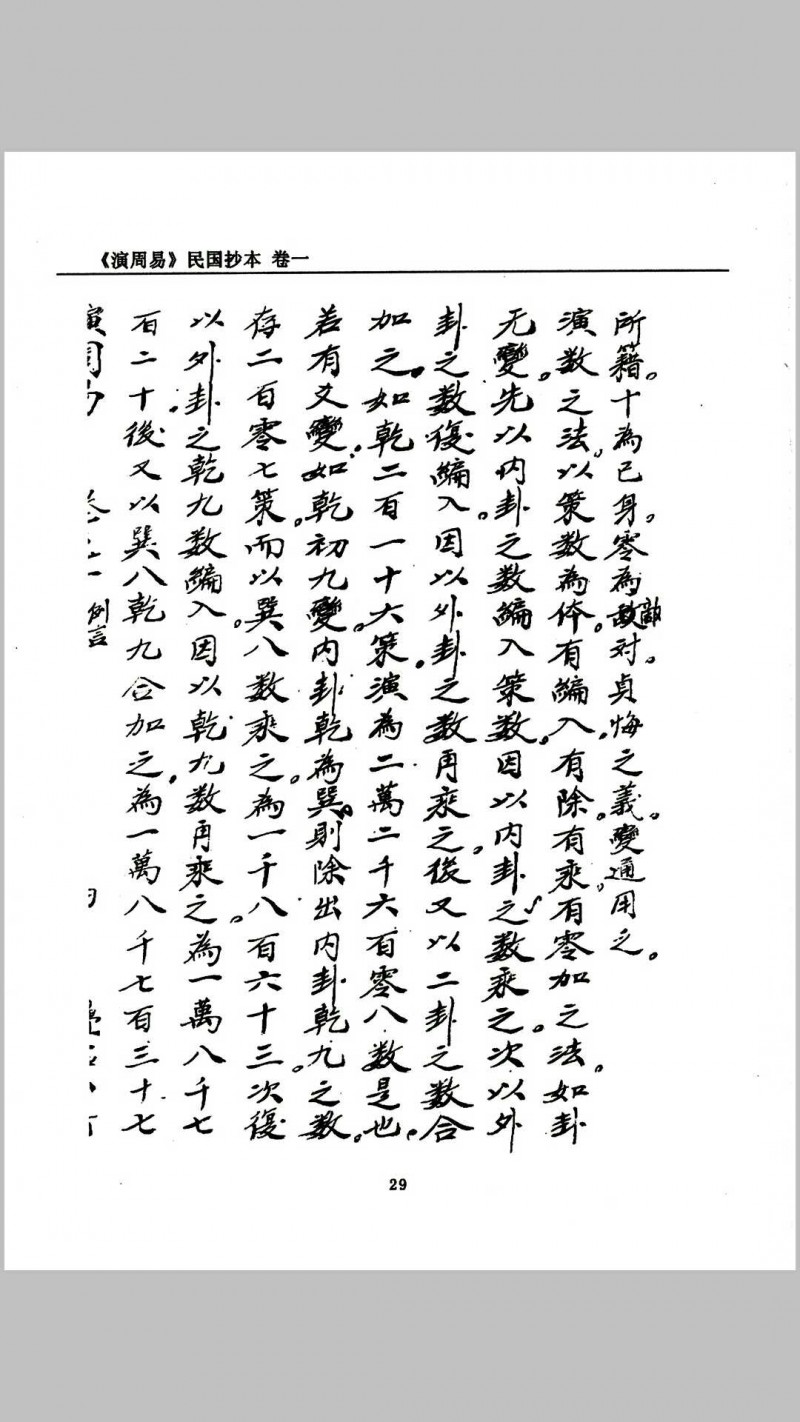 《演周易》民国抄本 卷一
所籍。十為已身。零為敵对。貞悔之義。變通用之。
演数之法。以策数為体。有編入。有除。有乘。有零加之法。如卦
无變。先以内卦之数編入策数。因以内卦之数乘之。次以外
卦之数復編入。因以外卦之数再乘之。後又以二卦之数合
加之。如乾二百一十六策。演為二萬二千六百零八数是也。
若有爻變。如乾初九變。内卦乾為巽。則除出内卦乾九之数。
存二百零七策。而以巽八数乘之。為一千八百六十三。次復
以外卦之乾九数編入。因以乾九数再乘之。為一萬八千七
百二十。後又以巽八乾九合加之。為一萬八千七百三十七
例言
29